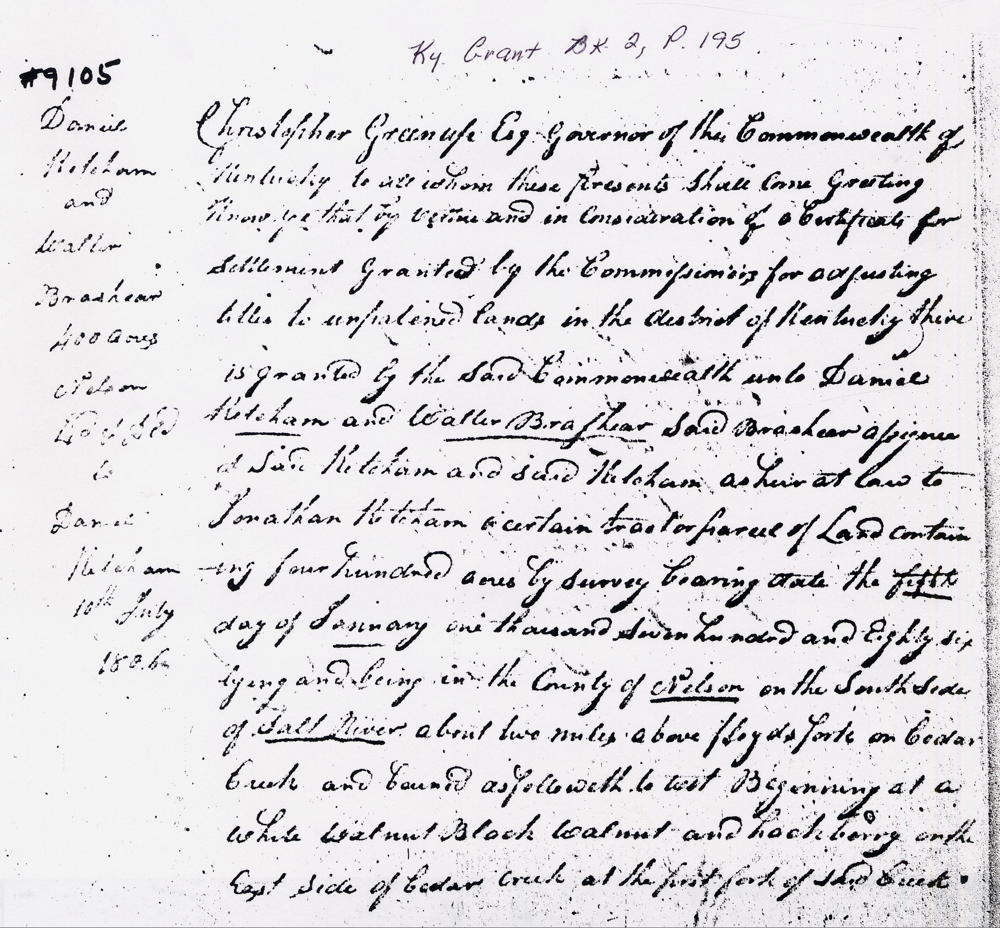 Ky. Grant BK. 2, P. 195
#9105
Daniel
Ketcham
and
Walter
Brashear
400 acres
Nelson
to
Daniel
Ketcham
10th July
1806
Christopher Greenup Esq. Governor of the Commonwealth of
Kentucky to all whom these presents shall Come Greeting
Know ye that by vertue and in Consideration of a Certificate for
Settlement Granted by the Commissioners for adjusting
titles to unpatened lands in the district of Kentucky there
is granted by the Said Commonwealth unto Daniel
Ketcham and Walter Brashear Said Brashear assignee
of Said Ketcham and said Ketcham as heir at law to
Jonathan Ketcham a certain tract or parcel of Land contain
ing four hundred acres by survey bearing date the fifth
day of January one thousand Seven hundred and Eighty six
lying and being in the County of Nelson on the South Side
of Salt River about two miles above floyds fork on Cedar
Creek and bound as followeth to wit Beginning at a
White Walnut Black Walnut and hackberry on the
East side of Cedar Creek at the first fork of said Creek